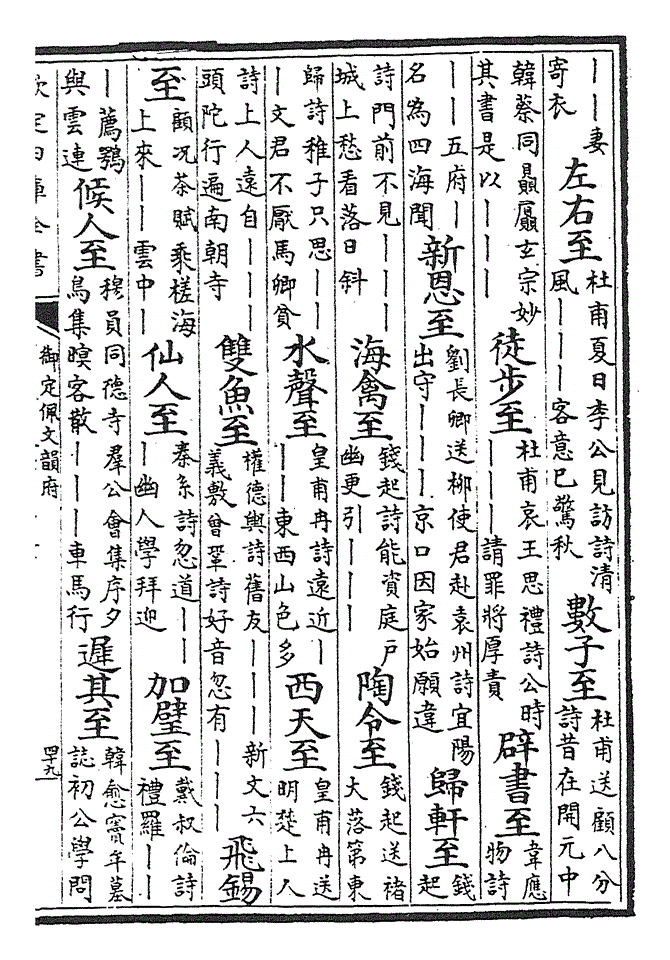 ｜｜妻
寄衣
左右至
杜甫夏日李公見訪詩清
風｜｜｜客意已驚秋
數子至
杜甫送顧八分
詩昔在開元中
韓蔡同贔屭玄宗妙
其書是以｜｜｜｜
徒步至
杜甫哀王思禮詩公時
｜｜｜請罪將厚責
辟書至
韋應
物詩
｜｜五府｜
名為四海聞
新恩至
劉長卿送柳使君赴袁州詩宜陽
出守｜｜｜京口因家始願違
歸軒至
錢
起
詩門前不見｜｜｜
城上愁看落日斜
海禽至
錢起詩能資庭戶
幽更引｜｜｜
陶令至
錢起送褚
大落第東
歸詩稚子只思｜｜
｜文君不厭馬卿貧
水聲至
皇甫冉詩遠近｜
｜｜東西山色多
西天至
皇甫冉送
明楚上人
詩上人遠自｜｜｜
頭陀行遍南朝寺
雙魚至
權德輿詩舊友｜｜｜新文六
義敷曾鞏詩好音忽有｜｜｜
飛錫
至
顧况茶賦乘槎海
上來｜｜雲中｜
仙人至
秦系詩忽道｜｜
｜幽人學拜迎
加璧至
戴叔倫詩
禮羅｜｜
｜薦鶚
與雲連
候人至
穆員同德寺羣公會集序夕
鳥集暝客散｜｜｜車馬行
遲其至
韓愈竇牟墓
誌初公學問
欽定四庫全書
御定佩文韻府
四十九